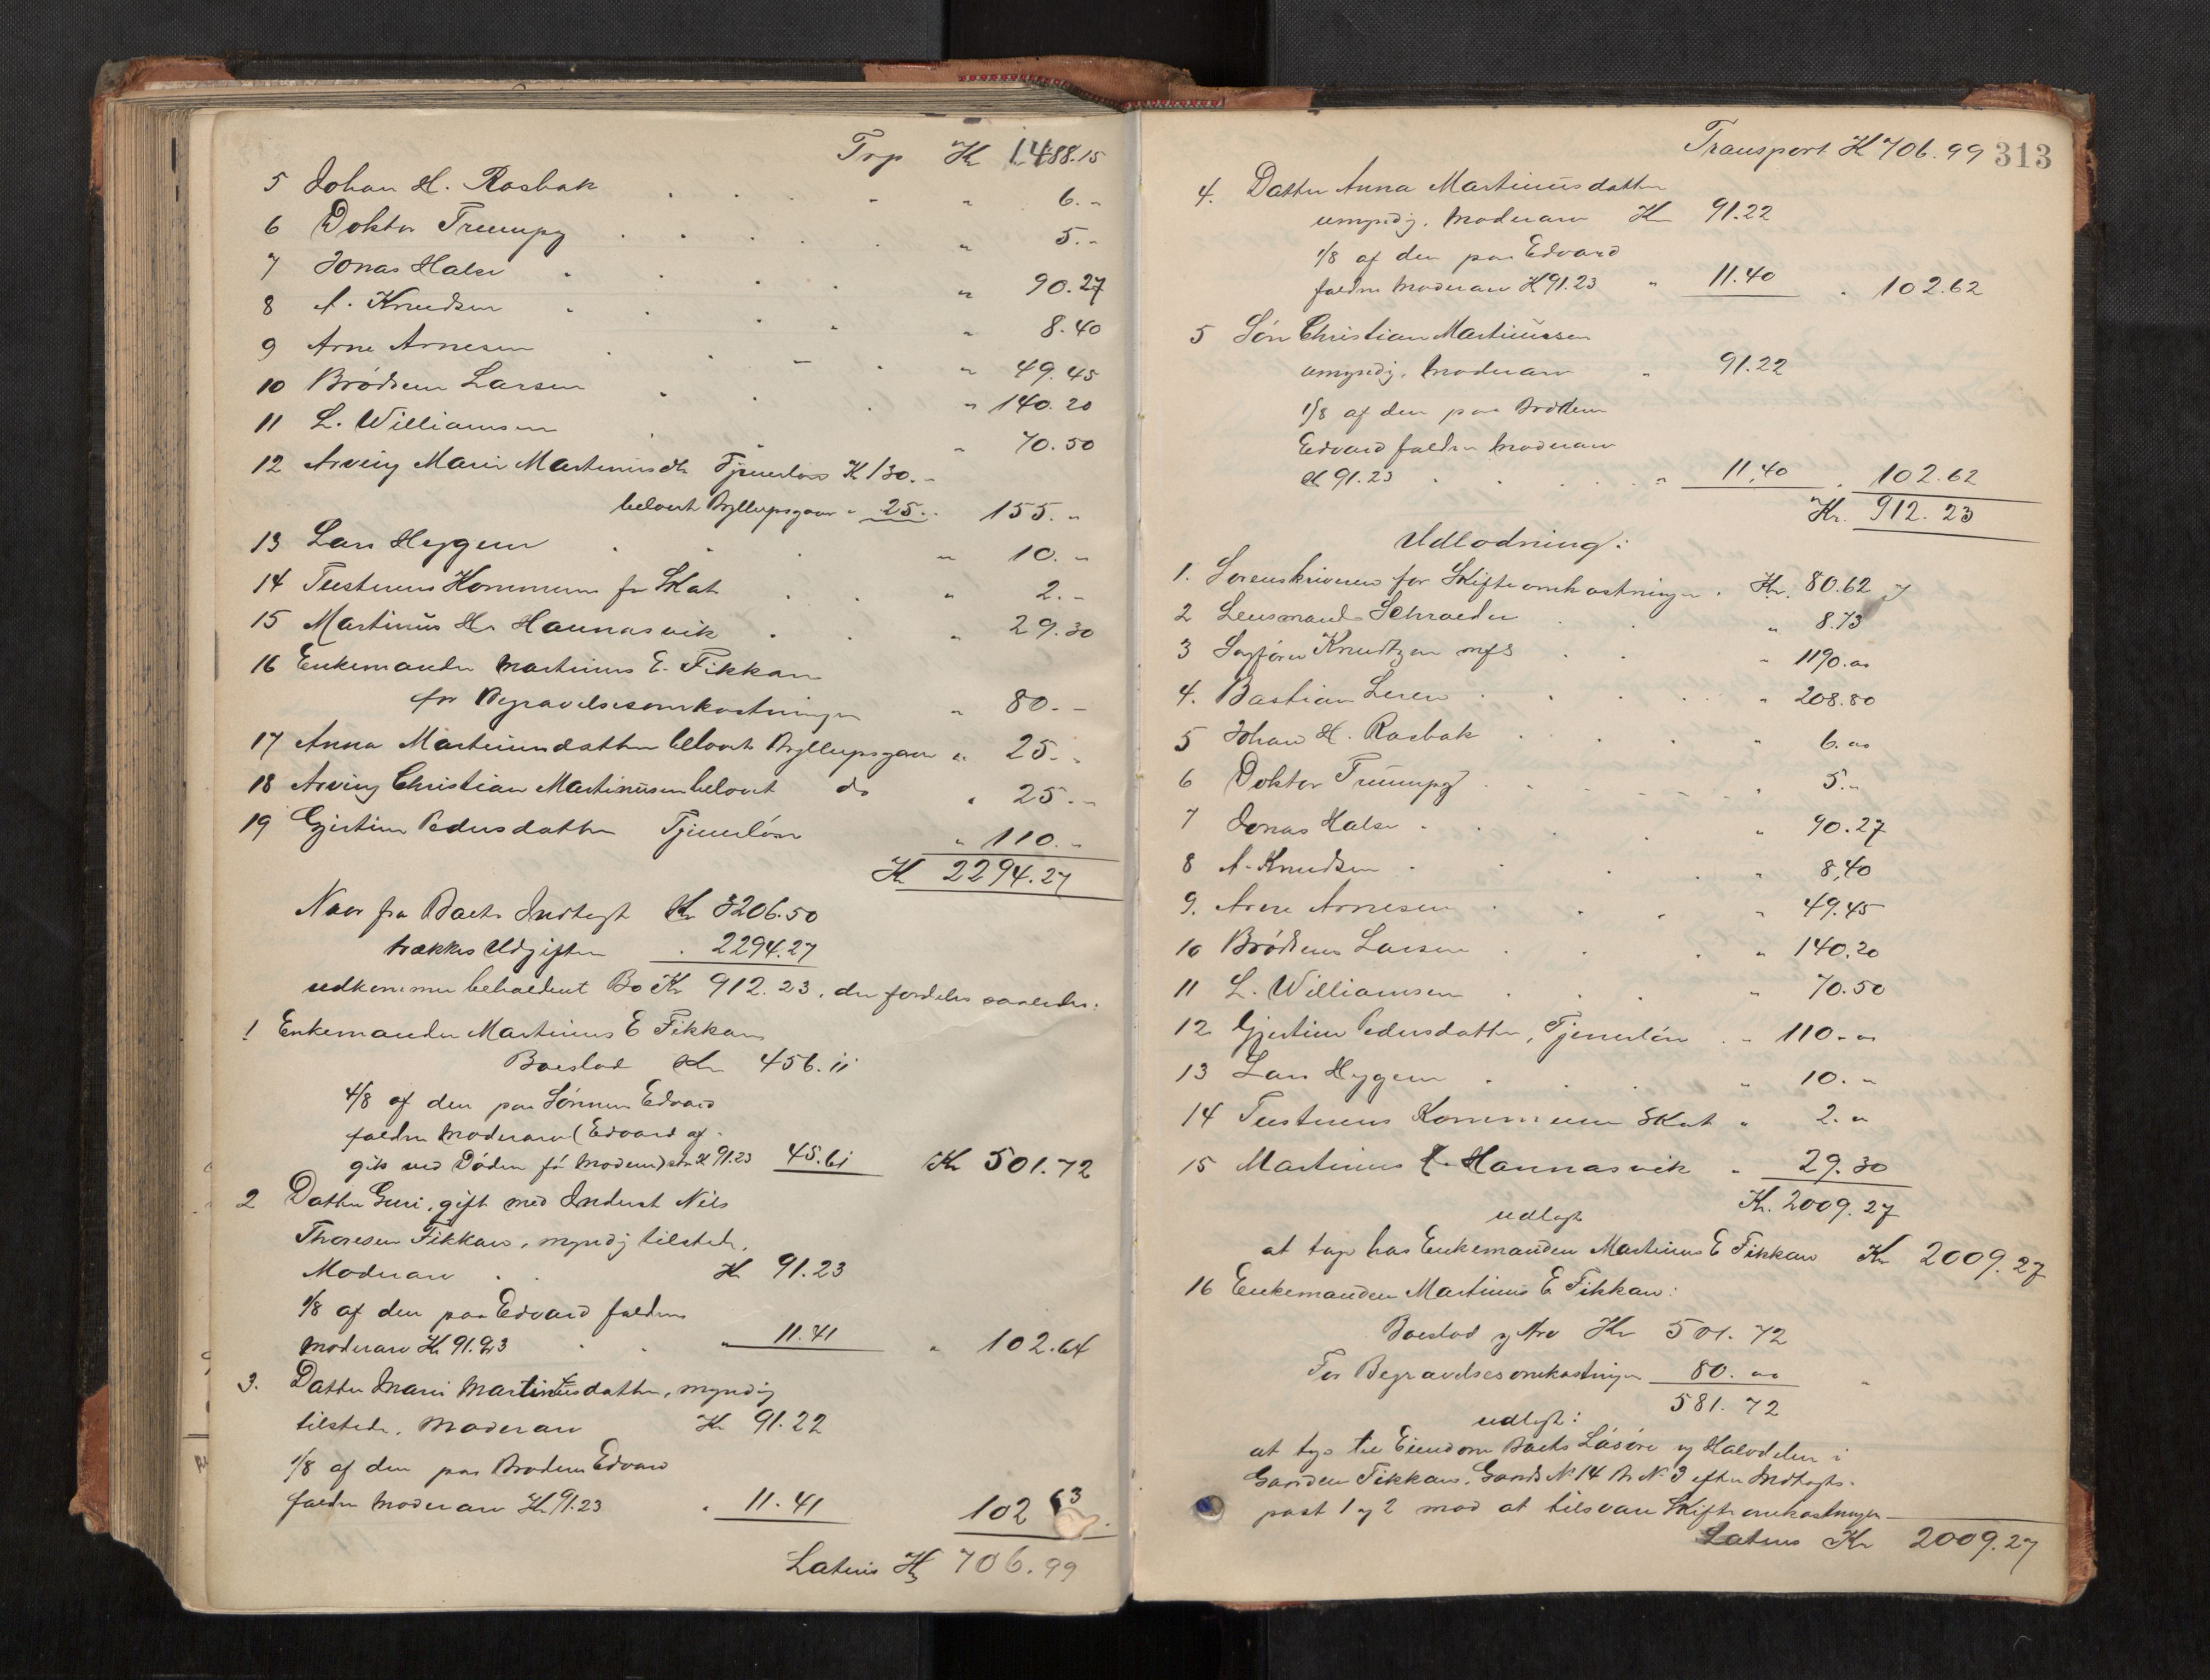 Trp Kr 1488.15
5 Johan H. Rasbak " 6.-
6 Doktor Trumpy " 5.-
7 Jonas Halse " 90.27
8 A. Knudsen " 8.40
9 Arne Arnesen " 49.45
10 Brødrene Larsen " 140.20
11 L. Williamsen " 70.50
12 Arving Marie Martinusdtr Tjenerløn Kr 130.-
belovet Bryllupsgave " 25.- 155.-
13 Lars Hygen " 10.-
14 Tusterens Kommune for Skat " 2.-
15 Martinus H. Haunasvik " 29.30
16 Enkemanden Martinus E. Fikkan
for Begravelsesomkostninger " 80.-
17 Anna Martinusdatter belovet Bryllupsgave " 25.-
18 Arving Christian Martinusen belovet do " 25.-
19 Gjertine Pedersdatter Tjenerløn " 110.-
Kr 2294.27
Naar fra Boets Indtægt Kr 3206.50
trækkes Udgiften " 2294.27
udkommer beholdent Bo Kr 912.23, der fordeles saaledes:
1 Enkemanden Martinus E Fikkan
Boeslod Kr 456.11
4/8 af den paa Sønnen Edvard
faldne Moderarv (Edvard af-
gik ved Døden før Moderen) stor Kr 91.23 45.61 Kr 501.72
2 Datter Guri, gift med Inderst Nils
Thoresen Fikkan, myndig tilstede,
Moderarv Kr 91.23
1/8 af den paa Edvard faldne
Moderarv Kr 91.23 " 11.41 " 102.64
3. Datter Marie Martinusdatter, myndig
tilstede, Moderarv Kr 91.22
1/8 af den paa Broderen Edvard
faldne Moderarv Kr 91.23 " 11.41 102 63
Lateris Kr 706.99
Transport Kr 706.99 313
4. Datter Anna Martinusdatter
umyndig, Moderarv Kr 91.22
1/8 af den paa Edvard
faldne Moderarv Kr 91.23 " 11.40 " 102.62
5 Søn Christian Martinussen
umyndig, Moderarv " 91.22
1/8 af den paa Broderen
Edvard faldne Moderarv
Kr 91.23 " 11,40 " 102.62
Kr. 912.23
Udlodning:
1. Sorenskriveren for Skifteomkostninger Kr. 80.62
2 Lensmand Schrøder " 8.73
3 Sagfører Knudtzon mfs " 1190.00
4. Bastian Leren " 208.80
5 Johan H. Rasbak " 6.00
6 Doktor Trumpy " 5.-
7 Jonas Halse " 90.27
8 A. Knudsen " 8,40
9. Arne Arnesen " 49.45
10 Brødrene Larsen " 140,20
11 L. Williamsen " 70.50
12 Gjertine Pedersdatter, Tjenerløn " 110.00
13 Lars Hygen " 10.-
14 Tusterens Kommune Skat " 2.-
15 Martinus H. Hannasvik " 29.30
Kr. 2009.27
udlagt
at tage hos Enkemanden Martinus E Fikkan Kr 2009.27
16 Enkemanden Martinus E Fikkan:
Boeslod og Arv Kr 501.72
For Begravelsesomkostninger 80.00
581.72
udlagt:
at tage til Eiendom Boets Løsøre og Halvdelen i
Gaarden Fikkan, Gaards No 14 B. No 3 efter Indtægts-
post 1 og 2 mod at tilsvare Skifteomkostninger
Lateris Kr 2009.27